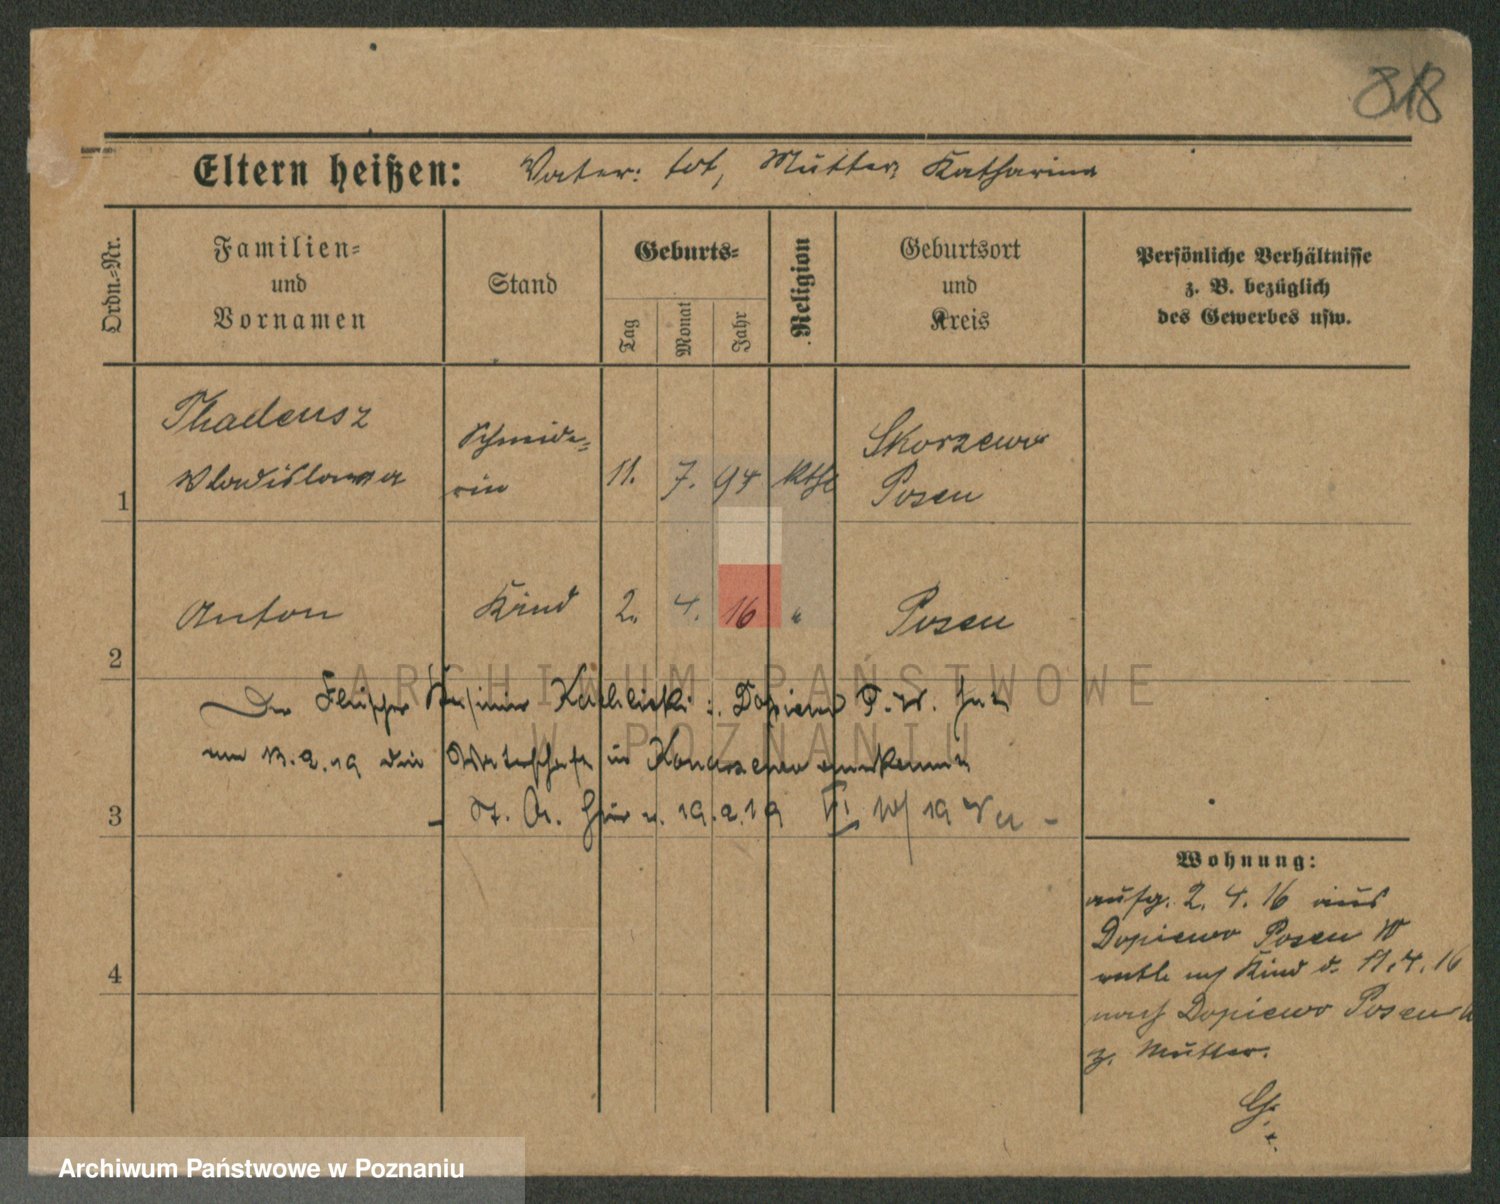 818
Eltern heißen: Vater: tot, Mutter, Katharina
Ordn.-Nr.
Familien-
und
Vornamen
Stand
Geburts-
Tag
Monat
Jahr
Religion
Geburtsort
und
Kreis
Persönliche Verhältnisse
z. B. bezüglich
des Gewerbes usw.
Thadeusz
Wladislawa
Schneide-
rin
11. 7. 94 kthl
Skorzewo
Posen
1
Anton Kind 2. 4. 16 " Posen
2
Der Fleischer Kasimir in Dopiewo P. W. hat
am 13.2.19 die Vaterschaft in Konarzewo anerkannt
3
St. A. 19.2.19 VI 10/19
Wohnung:
aufg. 2. 4. 16 aus
Dopiewo Posen W
entl. m/ Kind d. 11.4.16
nach Dopiewo Posen W
z. Mutter.
4
ARCHIWUM PAŃSTWOWE
W POZNANIU
Archiwum Państwowe w Poznaniu